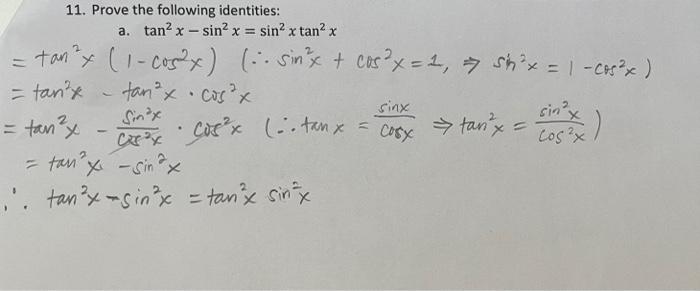 11. Prove the following identities:
a. tan² x − sin² x = sin² x tan² x
= tan²x (1-cos²x) (∵ sin²x + cos²x = 1, ⇒ sin²x = 1-cos²x)
= tan²x - tan²x · cos²x
= tan²x - sin²x/cos²x · cos²x (∵ tanx = sinx/cosx ⇒ tan²x = sin²x/cos²x)
= tan²x - sin²x
∴ tan²x - sin²x = tan²x sin²x